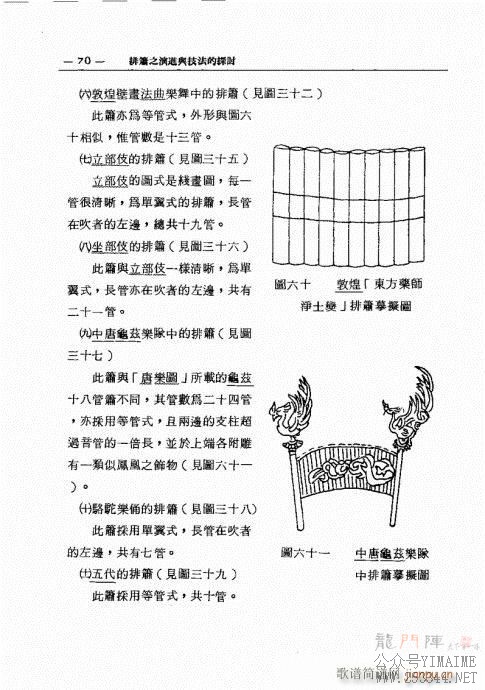 — 70 —　排簫之演進與技法的探討
㈥敦煌壁畫法曲樂舞中的排簫（見圖三十二）
此簫亦爲等管式，外形與圖六
十相似，惟管數是十三管。
㈦立部伎的排簫（見圖三十五）
立部伎的圖式是綫畫圖，每一
管很清晰，爲單翼式的排簫，長管
在吹者的左邊，總共十九管。
㈧坐部伎的排簫（見圖三十六）
此簫與立部伎一樣清晰，爲單
翼式，長管亦在吹者的左邊，共有
二十一管。
㈨中唐龜茲樂隊中的排簫（見圖
三十七）
此簫與「唐樂圖」所載的龜茲
十八管簫不同，其管數爲二十四管
，亦採用等管式，且兩邊的支柱超
過音管的一倍長，並於上端各附雕
有一類似鳳凰之飾物（見圖六十一
）。
㈩駱駝樂俑的排簫（見圖三十八）
此簫採用單翼式，長管在吹者
的左邊，共有七管。
(十一)五代的排簫（見圖三十九）
此簫採用等管式，共十管。
圖六十　敦煌「東方藥師
淨土變」排簫摹擬圖
圖六十一　中唐龜茲樂隊
中排簫摹擬圖
龍門陣
公众号YIMAIME
歌谱简谱网